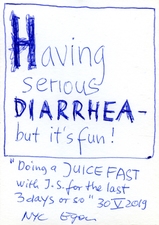 Having
serious
DIARRHEA-
but it's fun!
"Doing a JUICE FAST
with J.S. for the last
3 days or so" 30 V 2019
NYC